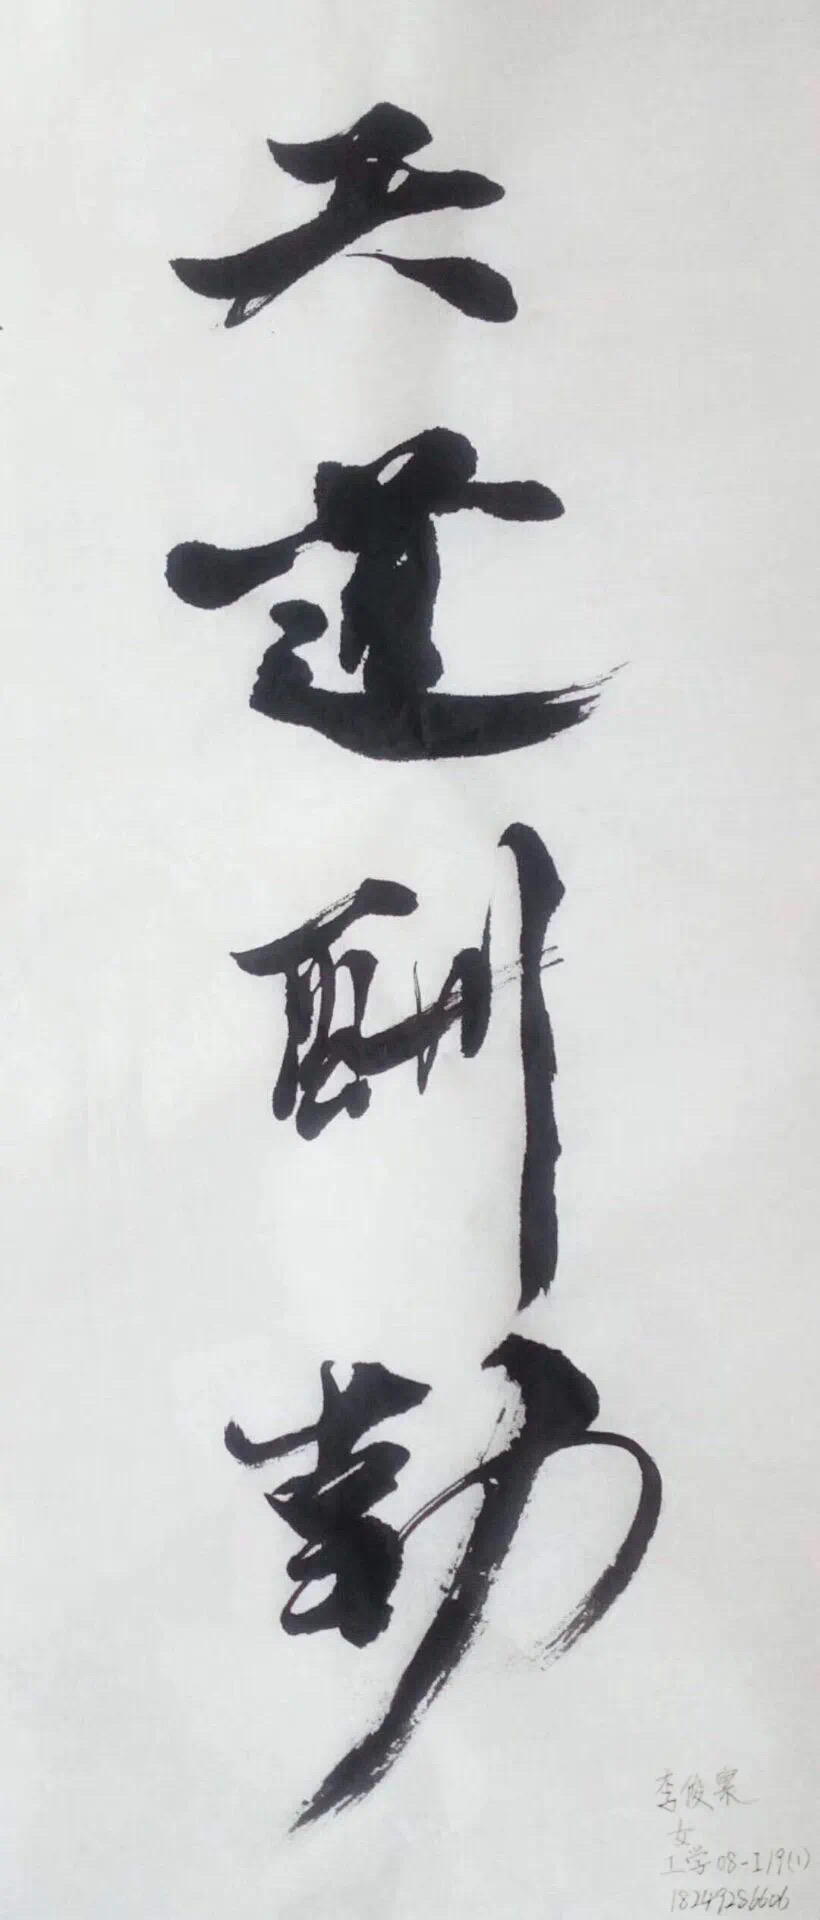 天道酬勤
李俊霖
女
工学08-I19(1)
18249286606